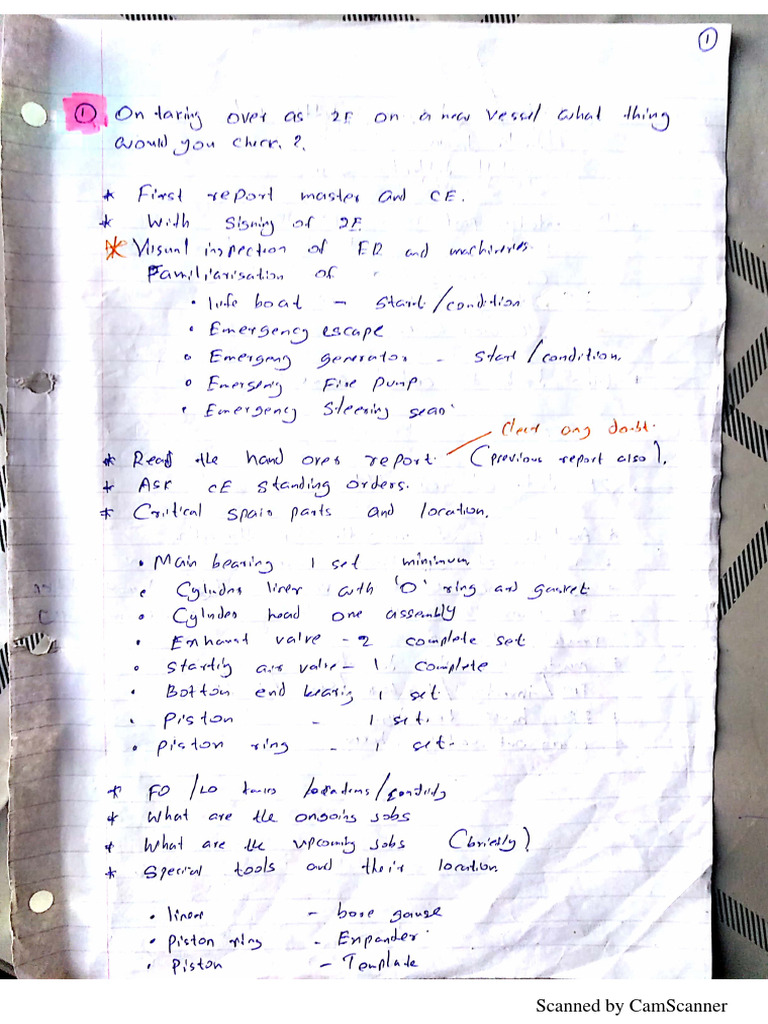 ①
① On taking over as 2E on a new vessel what thing
would you check?
* First report master and CE.
* With signing of 2E
* Visual inspection of ER and machineries.
Familiarisation of
• life boat – start/condition
• Emergency escape
• Emergency generator – start/condition.
• Emergency Fire Pump
• Emergency Steering gear.
Clear any doubt.
* Read the hand over report. (previous report also).
* Ask CE standing orders.
* Critical spair parts and location.
• Main bearing 1 set minimum
• Cylinder liner with 'O' ring and gasket
• Cylinder head one assembly
• Exhaust valve – 2 complete set
• Starting air valve – 1 complete
• Bottom end bearing 1 set.
• Piston – 1 set.
• piston ring – 1 set.
* FO/LO tanks locations/
* What are the ongoing jobs
* What are the upcoming jobs (briefly)
* Special tools and their location.
• liner – bore gauge
• piston ring – Expander
• Piston – Template
Scanned by CamScanner